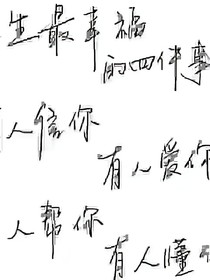 生最幸福
的四件事
人信你
有人爱你
人帮你
有人懂